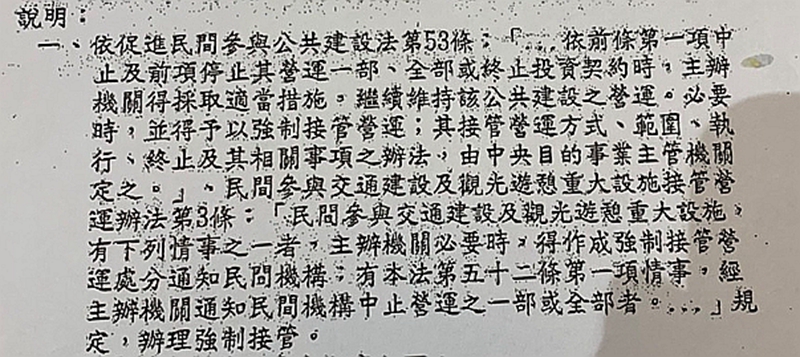 說明：
一、依促進民間參與公共建設法第53條：「...依前條第一項中
止及前項停止其營運一部、全部或終止投資契約時，主辦
機關得採取適當措施，繼續維持該公共建設之營運。必要
時，並得予以強制接管營運；其接管營運方式、範圍、執
行、終止及其相關事項之辦法，由中央目的事業主管機關
定之。」、民間參與交通建設及觀光遊憩重大設施接管營
運辦法第3條：「民間參與交通建設及觀光遊憩重大設施，
有下列情事之一者，主辦機關必要時，得作成強制接管營
運處分通知民間機構；有本法第五十二條第一項情事，經
主辦機關通知民間機構中止營運之一部或全部者。...」規
定，辦理強制接管。